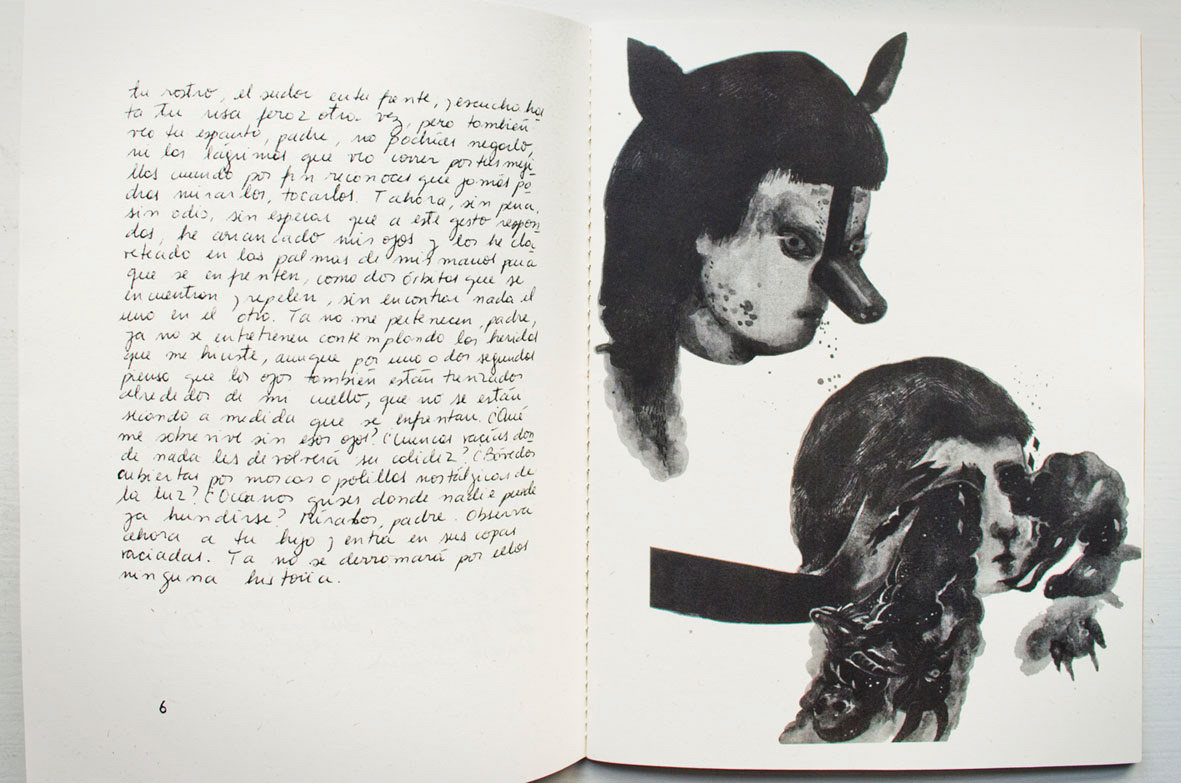 tu rostro, el sudor en tu frente, y escucho has
ta tu risa feroz otra vez, pero también
veo tu espanto, padre, no podrías negarlo,
ni las lágrimas que veo correr por tus meji
llas cuando por fin reconoces que jamás po
drás mirarlos, tocarlos. Y ahora, sin pena,
sin odio, sin esperar que a este gesto respon
das, he arrancado mis ojos y los he cla
veteado en las palmas de mis manos para
que se enfrenten, como dos órbitas que se
encuentran y repelen, sin encontrar nada el
uno en el otro. Ya no me pertenecen, padre,
ya no se entretienen contemplando las heridas
que me hiciste, aunque por uno o dos segundos
pienso que los ojos también están trenzados
alrededor de mi cuello, que no se están
secando a medida que se enfrentan. ¿Qué
me sobrevive sin esos ojos? ¿Cuencas vacías don
de nada les devolverá su calidez? ¿Bóvedas
cubiertas por moscas o polillas nostálgicas de
la luz? ¿Océanos grises donde nadie puede
ya hundirse? Míralos, padre. Observa
ahora a tu hijo y entra en sus copas
vaciadas. Ya no se derramará por ellos
ninguna historia.
6